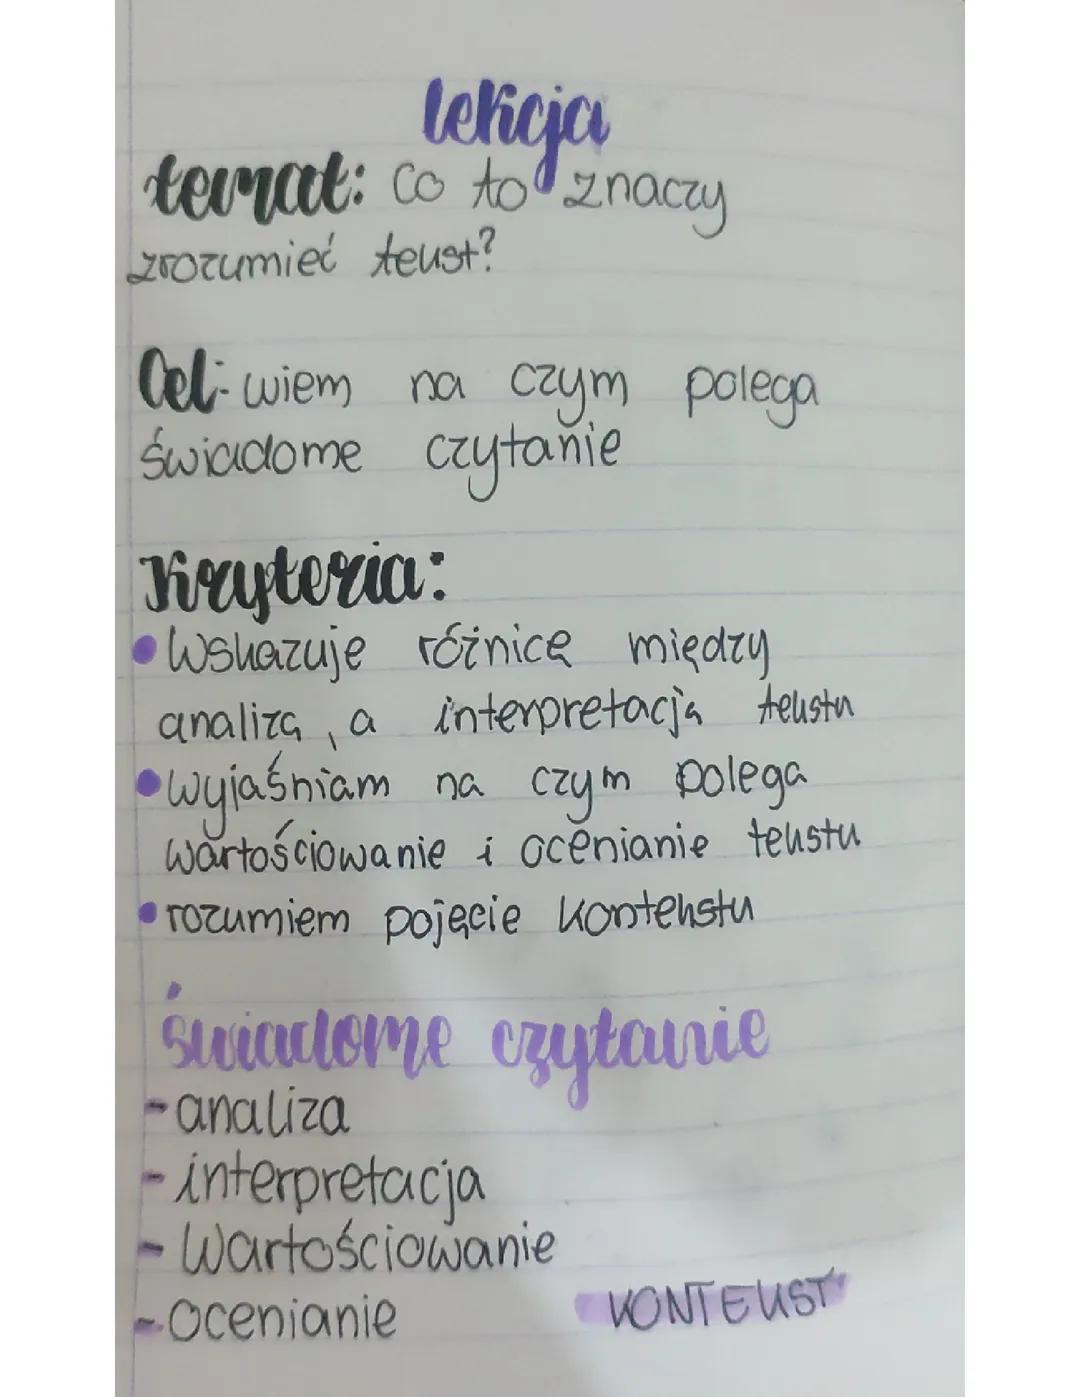 lekcja
temat: Co to znaczy
zrozumieć tekst?
Cel: wiem na czym polega
świadome czytanie
Kryteria:
• Wskazuje różnicę między
analizą, a interpretacją tekstu
• wyjaśniam na czym polega
wartościowanie i ocenianie tekstu
• rozumiem pojęcie kontekstu
świadome czytanie
- analiza
- interpretacja
- Wartościowanie
- ocenianie KONTEKST